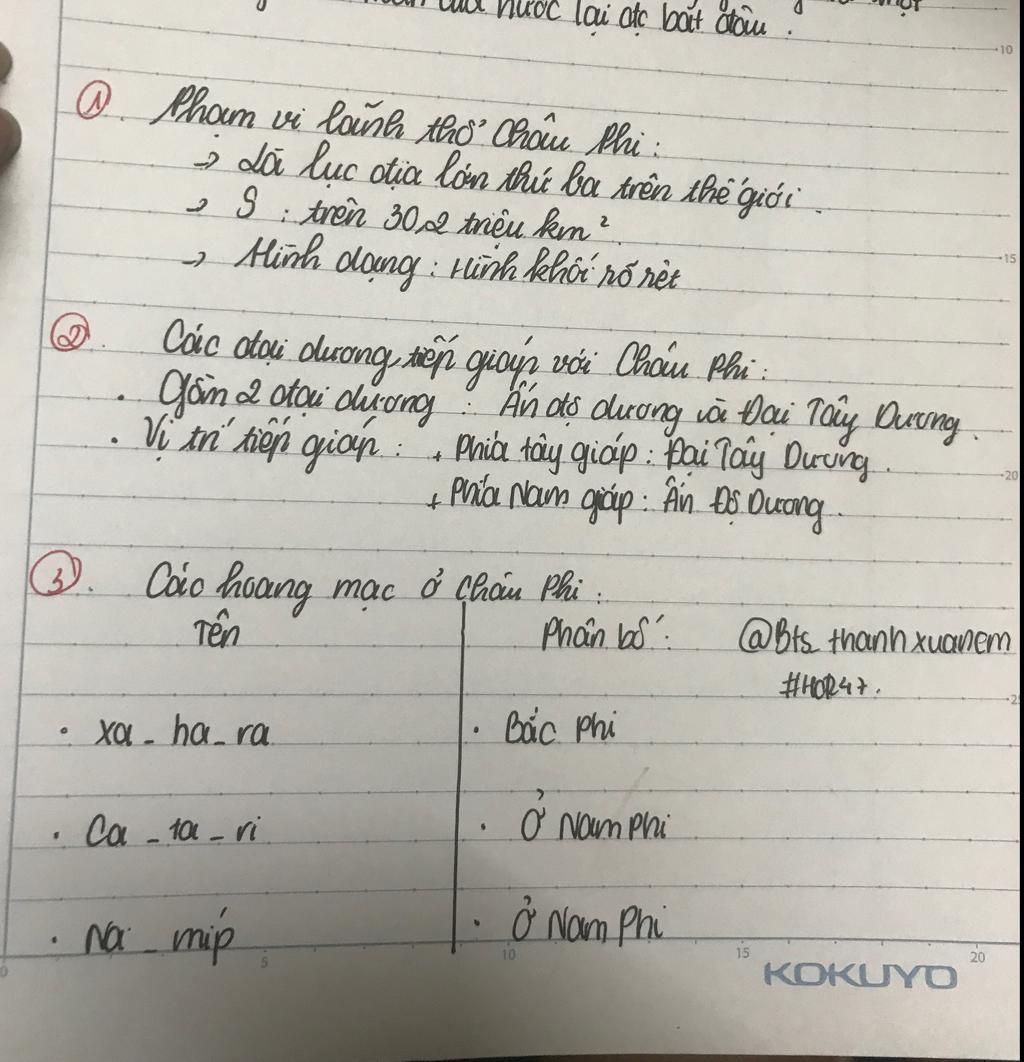 của nước lại đc bắt đầu.
10
① Phạm vi lãnh thổ Châu Phi:
→ Là lục địa lớn thứ ba trên thế giới.
→ S : trên 30,2 triệu km²
→ Hình dạng : Hình khối rõ rệt
15
② Các đại dương tiếp giáp với Châu Phi:
• Gồm 2 đại dương : Ấn độ dương và Đại Tây Dương.
• Vị trí tiếp giáp : + Phía tây giáp : Đại Tây Dương.
20
+ Phía Nam giáp : Ấn Độ Dương.
③ Các hoang mạc ở Châu Phi:
Tên Phân bố : @Bts_thanhxuanem
#HOR47.
• xa - ha - ra • Bắc Phi
• Ca - ta - ri • Ở Nam Phi
• Na - míp • Ở Nam Phi
0 5 10 15 20
KOKUYO